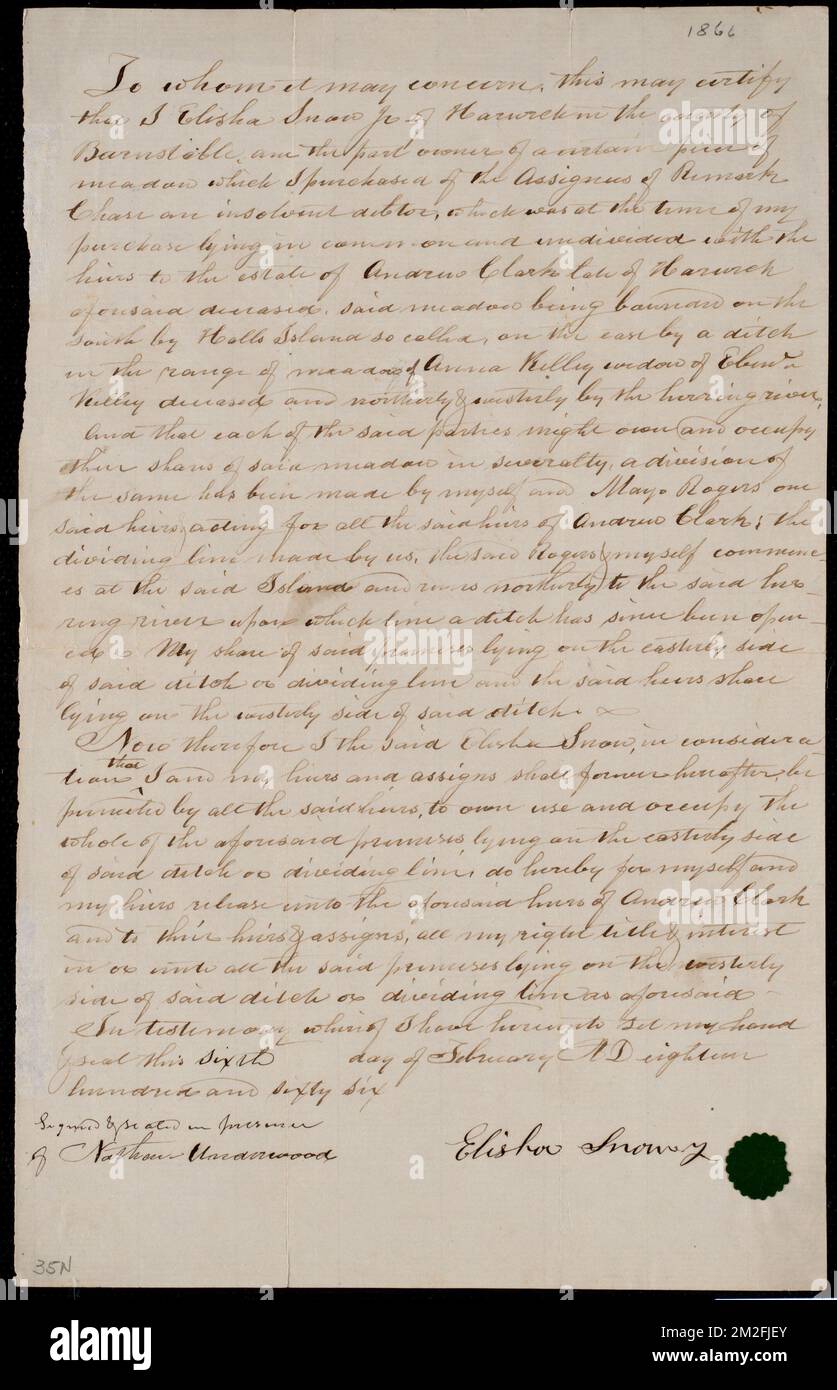 1866
To whom it may concern, this may certify
that I Elisha Snow Jr of Harwich in the county of
Barnstable, am the part owner of a certain piece of
meadow which I purchased of the Assignees of Remark
Chase an insolvent debtor, which was at the time of my
purchase lying in common and undivided with the
heirs to the estate of Andrew Clark late of Harwich
aforesaid deceased, said meadow being bounded on the
south by Halls Island so called, on the east by a ditch
in the range of meadow of Anna Kelley widow of Ebenr
Kelley deceased and northerly & westerly by the herring river,
And that each of the said parties might own and occupy
their shares of said meadow in severalty, a division of
the same has been made by myself and Mayo Rogers one
said heirs, acting for all the said heirs of Andrew Clark; the
dividing line made by us, the said Rogers & myself commenc-
es at the said Island and runs northerly to the said her-
ring river upon which line a ditch has since been open-
ed. My share of said premises lying on the easterly side
of said ditch or dividing line and the said heirs share
lying on the westerly side of said ditch.
Now therefore I the said Elisha Snow, in considera-
tion that I and my heirs and assigns shall forever hereafter be
permitted by all the said heirs, to own use and occupy the
whole of the aforesaid premises lying on the easterly side
of said ditch or dividing line, do hereby for myself and
my heirs release unto the aforesaid heirs of Andrew Clark
and to their heirs & assigns, all my right title & interest
in or unto all the said premises lying on the westerly
side of said ditch or dividing line as aforesaid -
In testimony whereof I have hereunto set my hand
& seal this sixth day of February A D eighteen
hundred and sixty six
Signed & sealed in presence
of Nathan Underwood
Elisha Snow Jr
35N
alamy
alamy
Image ID: 2M2FJEY
www.alamy.com